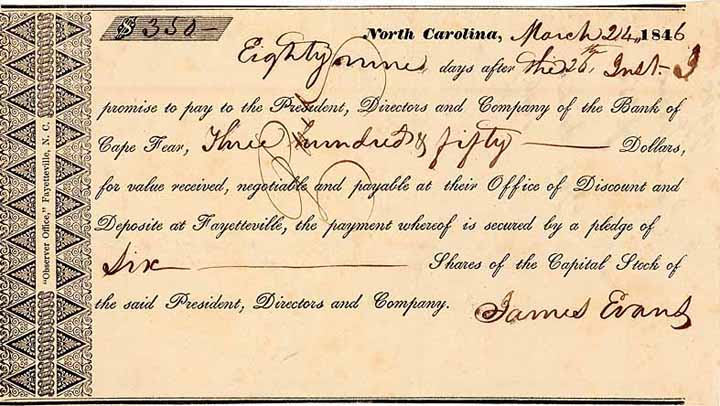 $350-
North Carolina, March 24, 1846
Eighty nine days after the 26th Inst. I
promise to pay to the President, Directors and Company of the Bank of
Cape Fear, Three hundred & fifty — Dollars,
for value received, negotiable and payable at their Office of Discount and
Deposite at Fayetteville, the payment whereof is secured by a pledge of
Six — Shares of the Capital Stock of
the said President, Directors and Company.
James Evans
"Observer Office," Fayetteville, N. C.